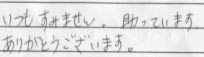 いつもすみません。助っています。
ありがとうございます。